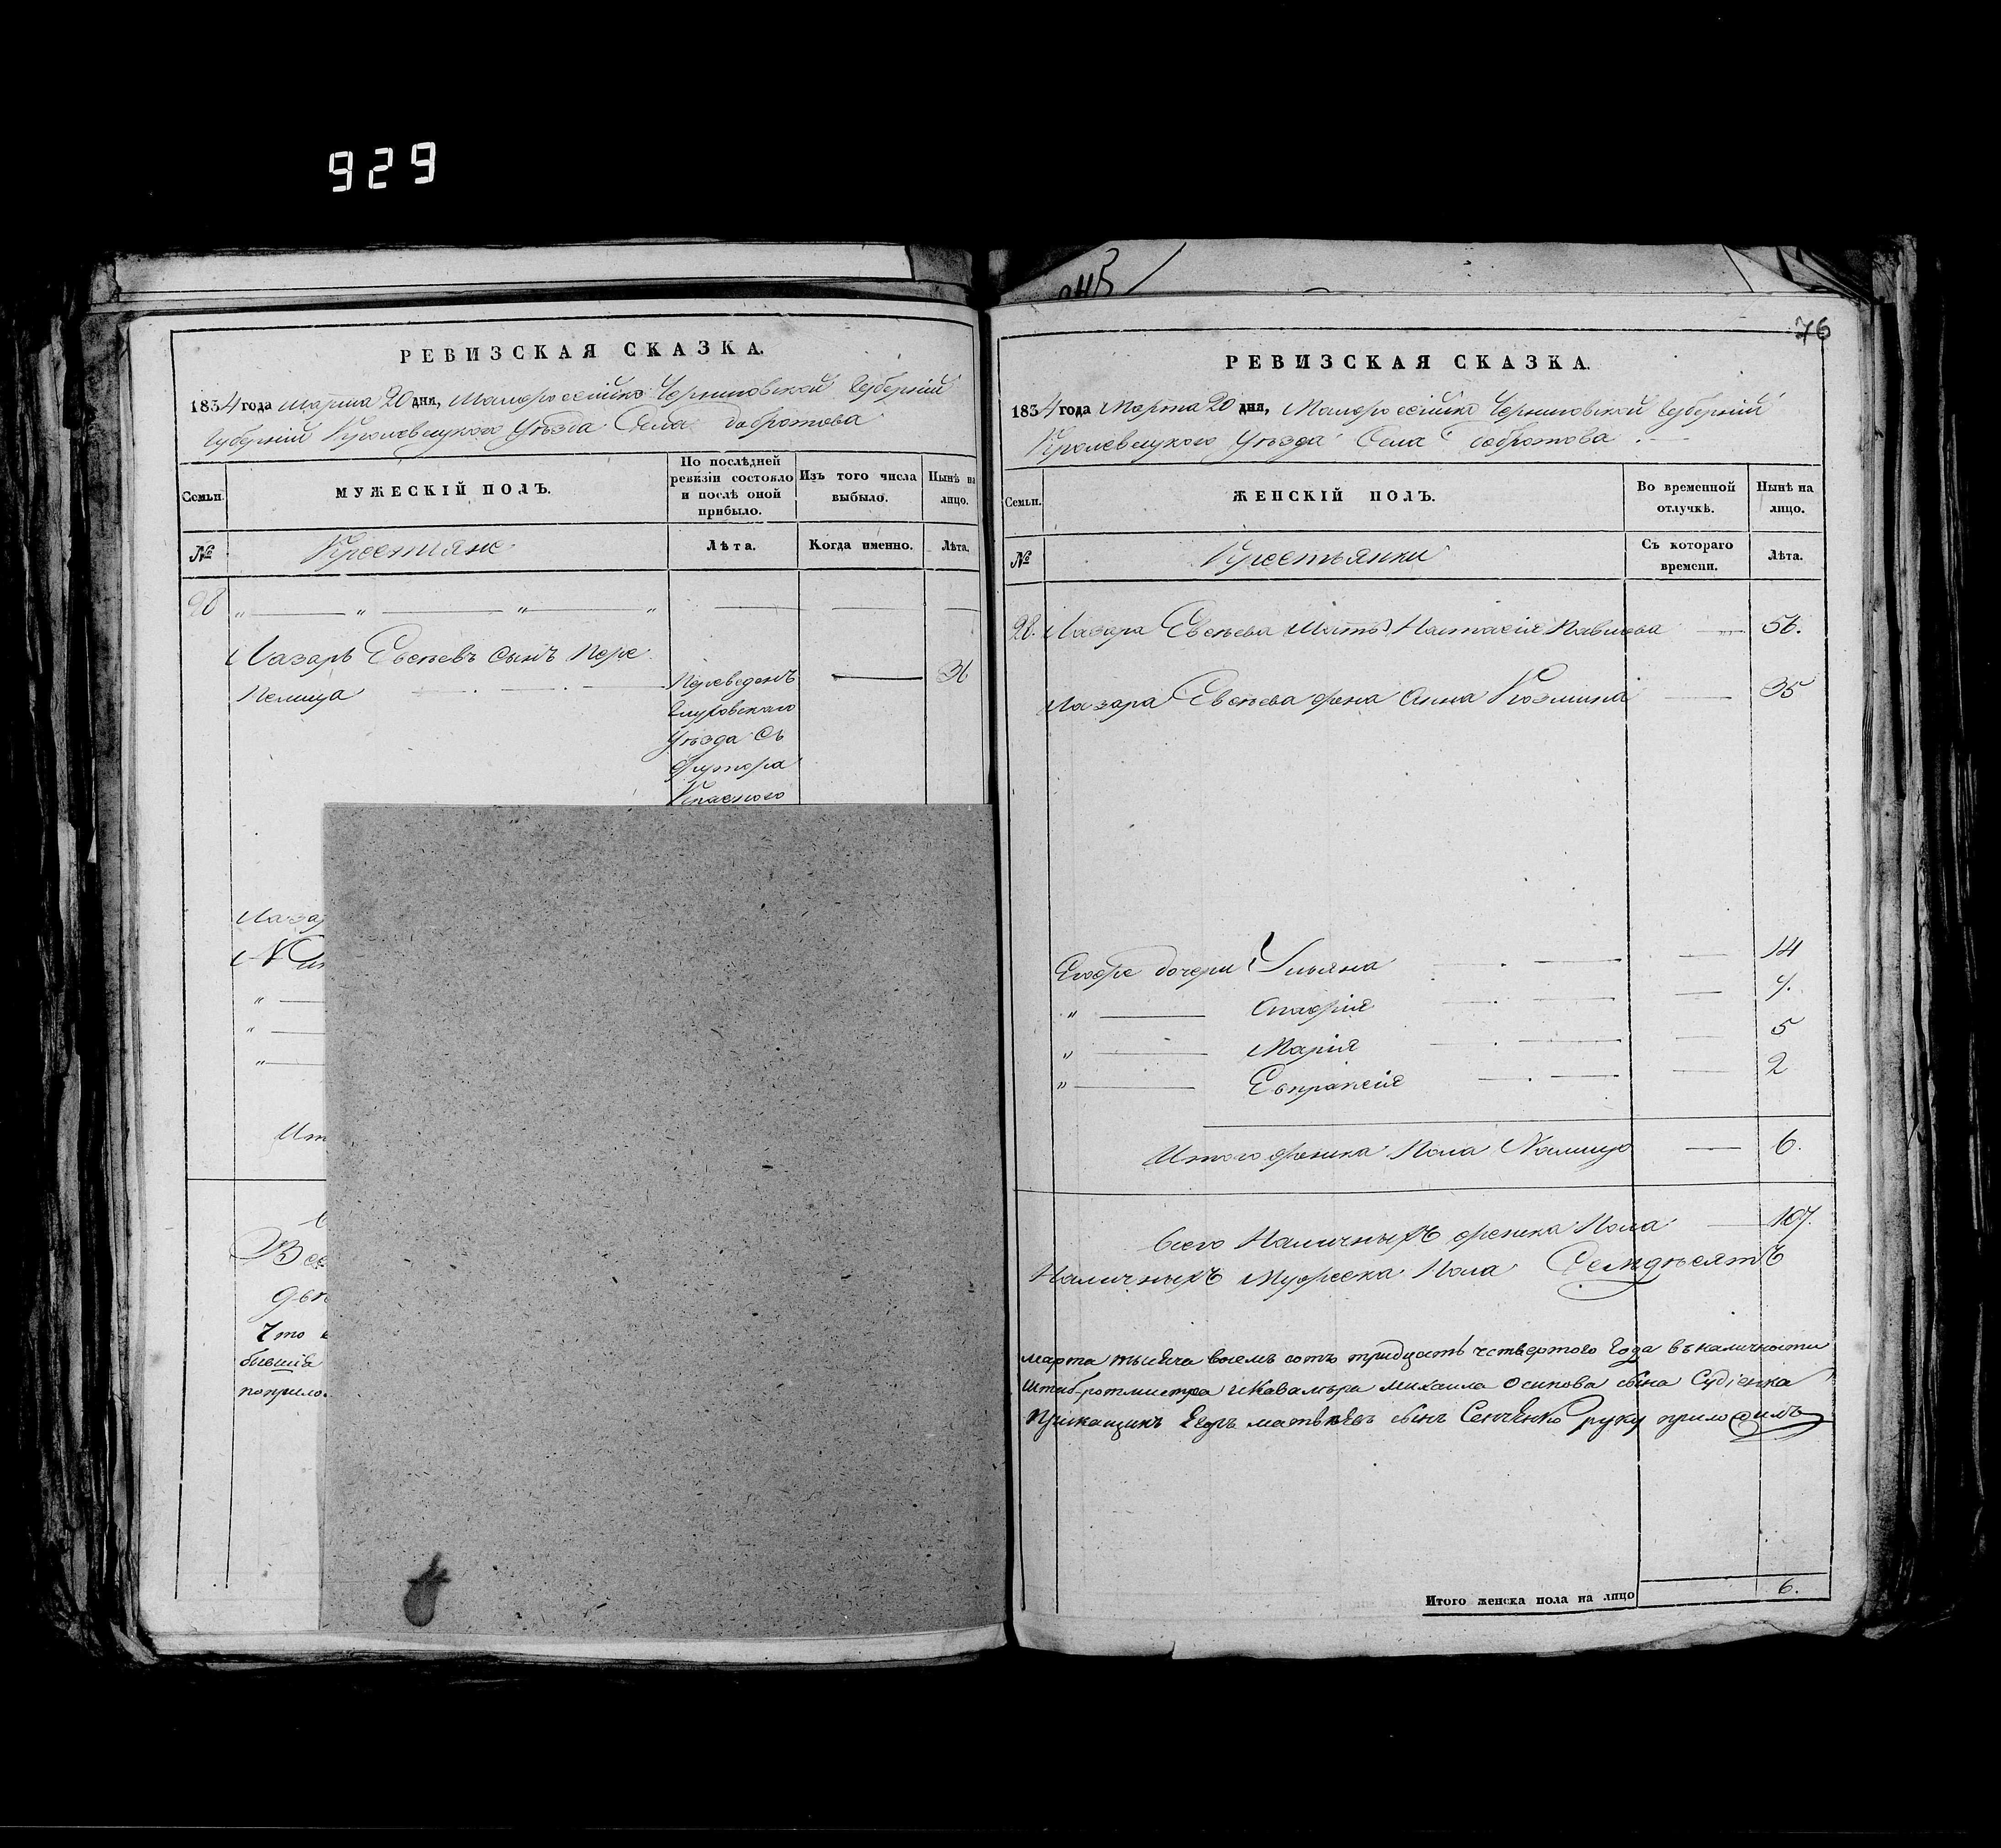 929
РЕВИЗСКАЯ СКАЗКА.
1834 года Марта 20 дня, Малороссійско Черниговской Губерніи
Губерніи Кролевецкого Уѣзда Села Добротова
Семьи. МУЖЕСКІЙ ПОЛЪ. По послѣдней ревизіи состояло и послѣ оной прибыло. Изъ того числа выбыло. Нынѣ на лицо.
№ Крестьяне Лѣта. Когда именно. Лѣта.
28 „ — „ — „ — „
Лазарь Евсѣевъ сынъ Пере
Пелица Переведенъ — 36
Глуховского
Уѣзда съ
Футора
Лазар
„ —
„ —
„ —
Ит
Все
Что
бывшія
76
РЕВИЗСКАЯ СКАЗКА.
1834 года Марта 20 дня, Малороссійско Черниговской Губерніи
Кролевецкого Уѣзда Села Добротова .
Семьи. ЖЕНСКІЙ ПОЛЪ. Во временной отлучкѣ. Нынѣ на лицо.
№ Крестьянки Съ котораго времени. Лѣта.
28. Лазара Евсѣева Мать Настасія Павлова — 56.
Лазара Евсѣева жена Анна Козмина — 35
Егоже дочери Ульяна — 14
„ — Агафія — 7.
„ — Марія — 5
„ — Евпраксія — 2
Итого женска Пола Налицо — 6.
Всего Наличныхъ женска Пола — 107.
Наличныхъ Мужеска Пола Семдѣсятъ
марта тысяча восемъ сотъ тридцать четвертого Года въ наличности
Штаб-ротмистра и Кавалѣра Михаила Осипова сына Судіенка
Прикащикъ Егоръ матвѣевъ сынъ Сенченко руку приложилъ
Итого женска пола на лицо 6.